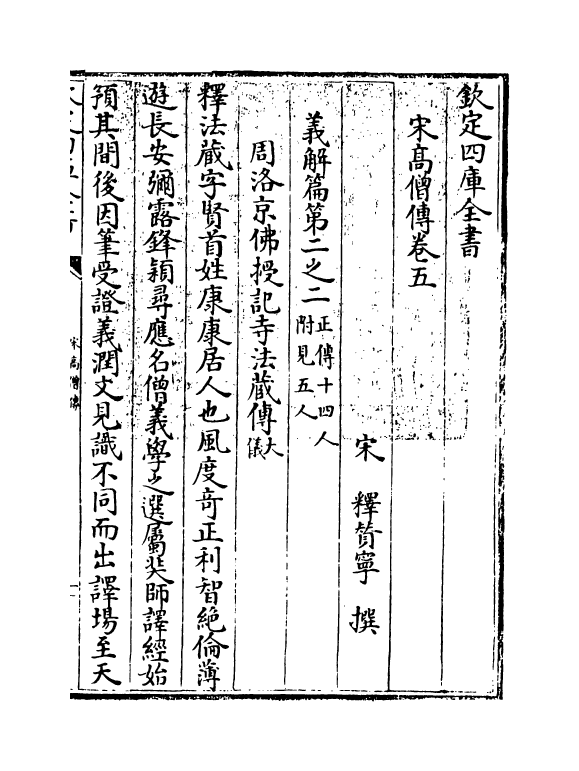 欽定四庫全書
宋高僧傳卷五
宋 釋贊寧 撰
義解篇第二之二正傳十四人附見五人
周洛京佛授記寺法藏傳大儀
釋法藏字賢首姓康康居人也風度奇正利智絶倫薄
遊長安彌露鋒穎尋應名僧義學之選屬奘師譯經始
預其間後因筆受證義潤文見識不同而出譯塲至天
宋高僧傳